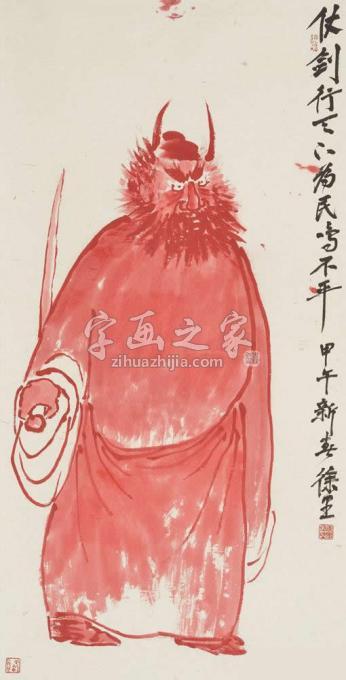 仗剑行天下为民鸣不平
甲午新春徐里
字画之家
zihuazhijia.com